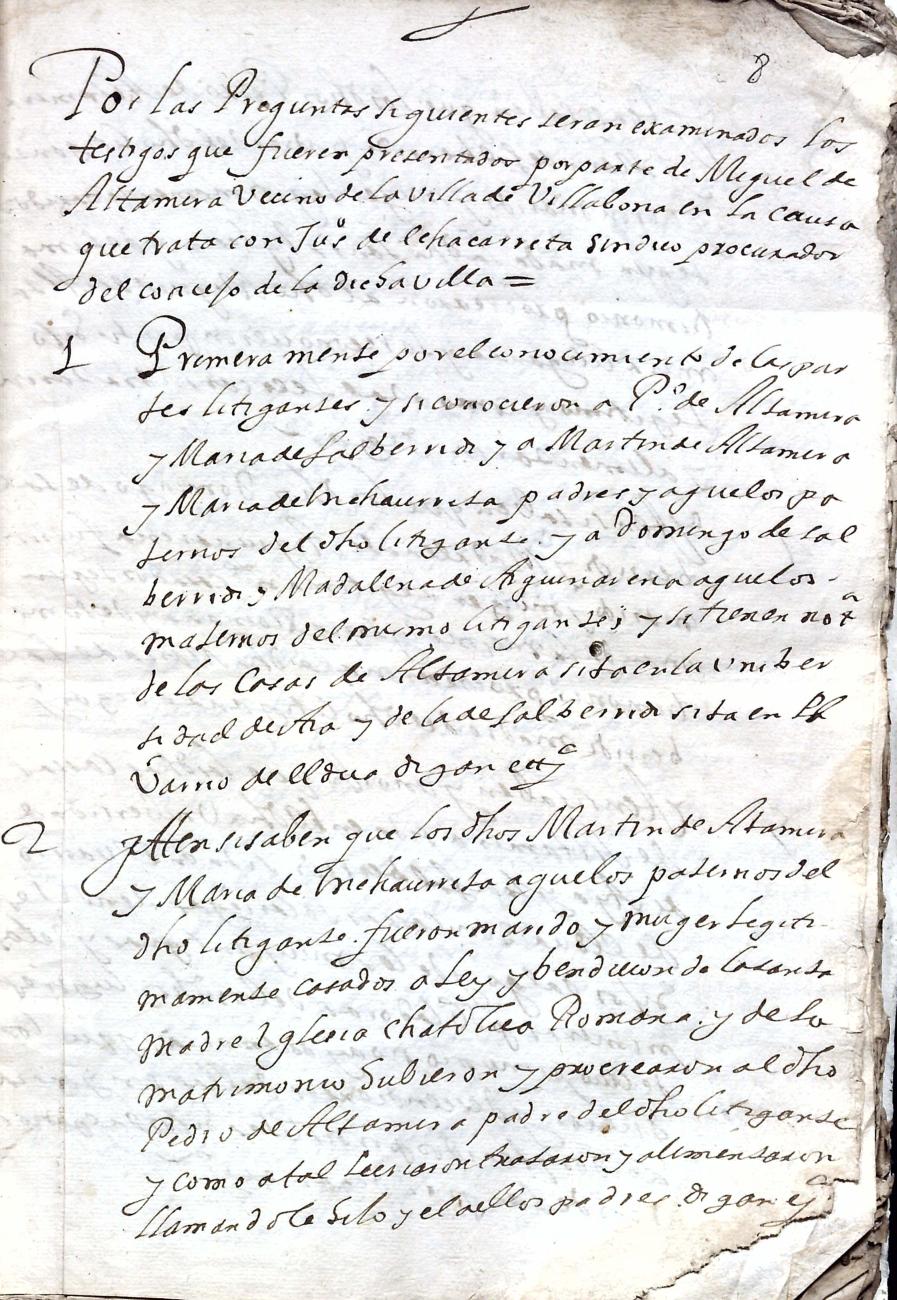 8
Por las Preguntas siguientes seran examinados los
testigos que fueren presentados por parte de Miguel de
Altamira Vecino de la villa de Villabona en la causa
que trata con Juº de Echacarreta Sindico procurador
del concejo de la dicha villa =
1 Primera mente por el conocimiento de las par
tes litigantes y si conocieron a Pº de Altamira
y Maria de Salberridi y a Martin de Altamira
y Maria de Inchaurreta padres y aguelos pa
ternos del dho litigante y a Domingo de sal
berridi y Madalena de aguelos
maternos del mismo litigante; y si tienen notª
de las Casas de Altamira sita en la Uniber
sidad de Aia y de la de Salberridi sita en el
Varrio de Eldua digan ettª
2 Yten si saben que los dhos Martin de Altamira
y Maria de Inchaurreta aguelos paternos del
dho litigante fueron marido y muger legiti
mamente casados a ley y bendicion de la santa
madre Iglesia Chatolica Romana y de su
matrimonio hubieron y procrearon al dho
Pedro de Altamira padre del dho litigante
y como a tal le criaron trataron y alimentaron
llamandole hilo y el a ellos padres digan eª